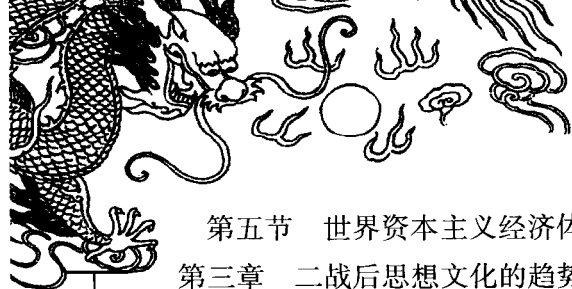 第五节 世界资本主义经济体
第三章 二战后思想文化的趋势